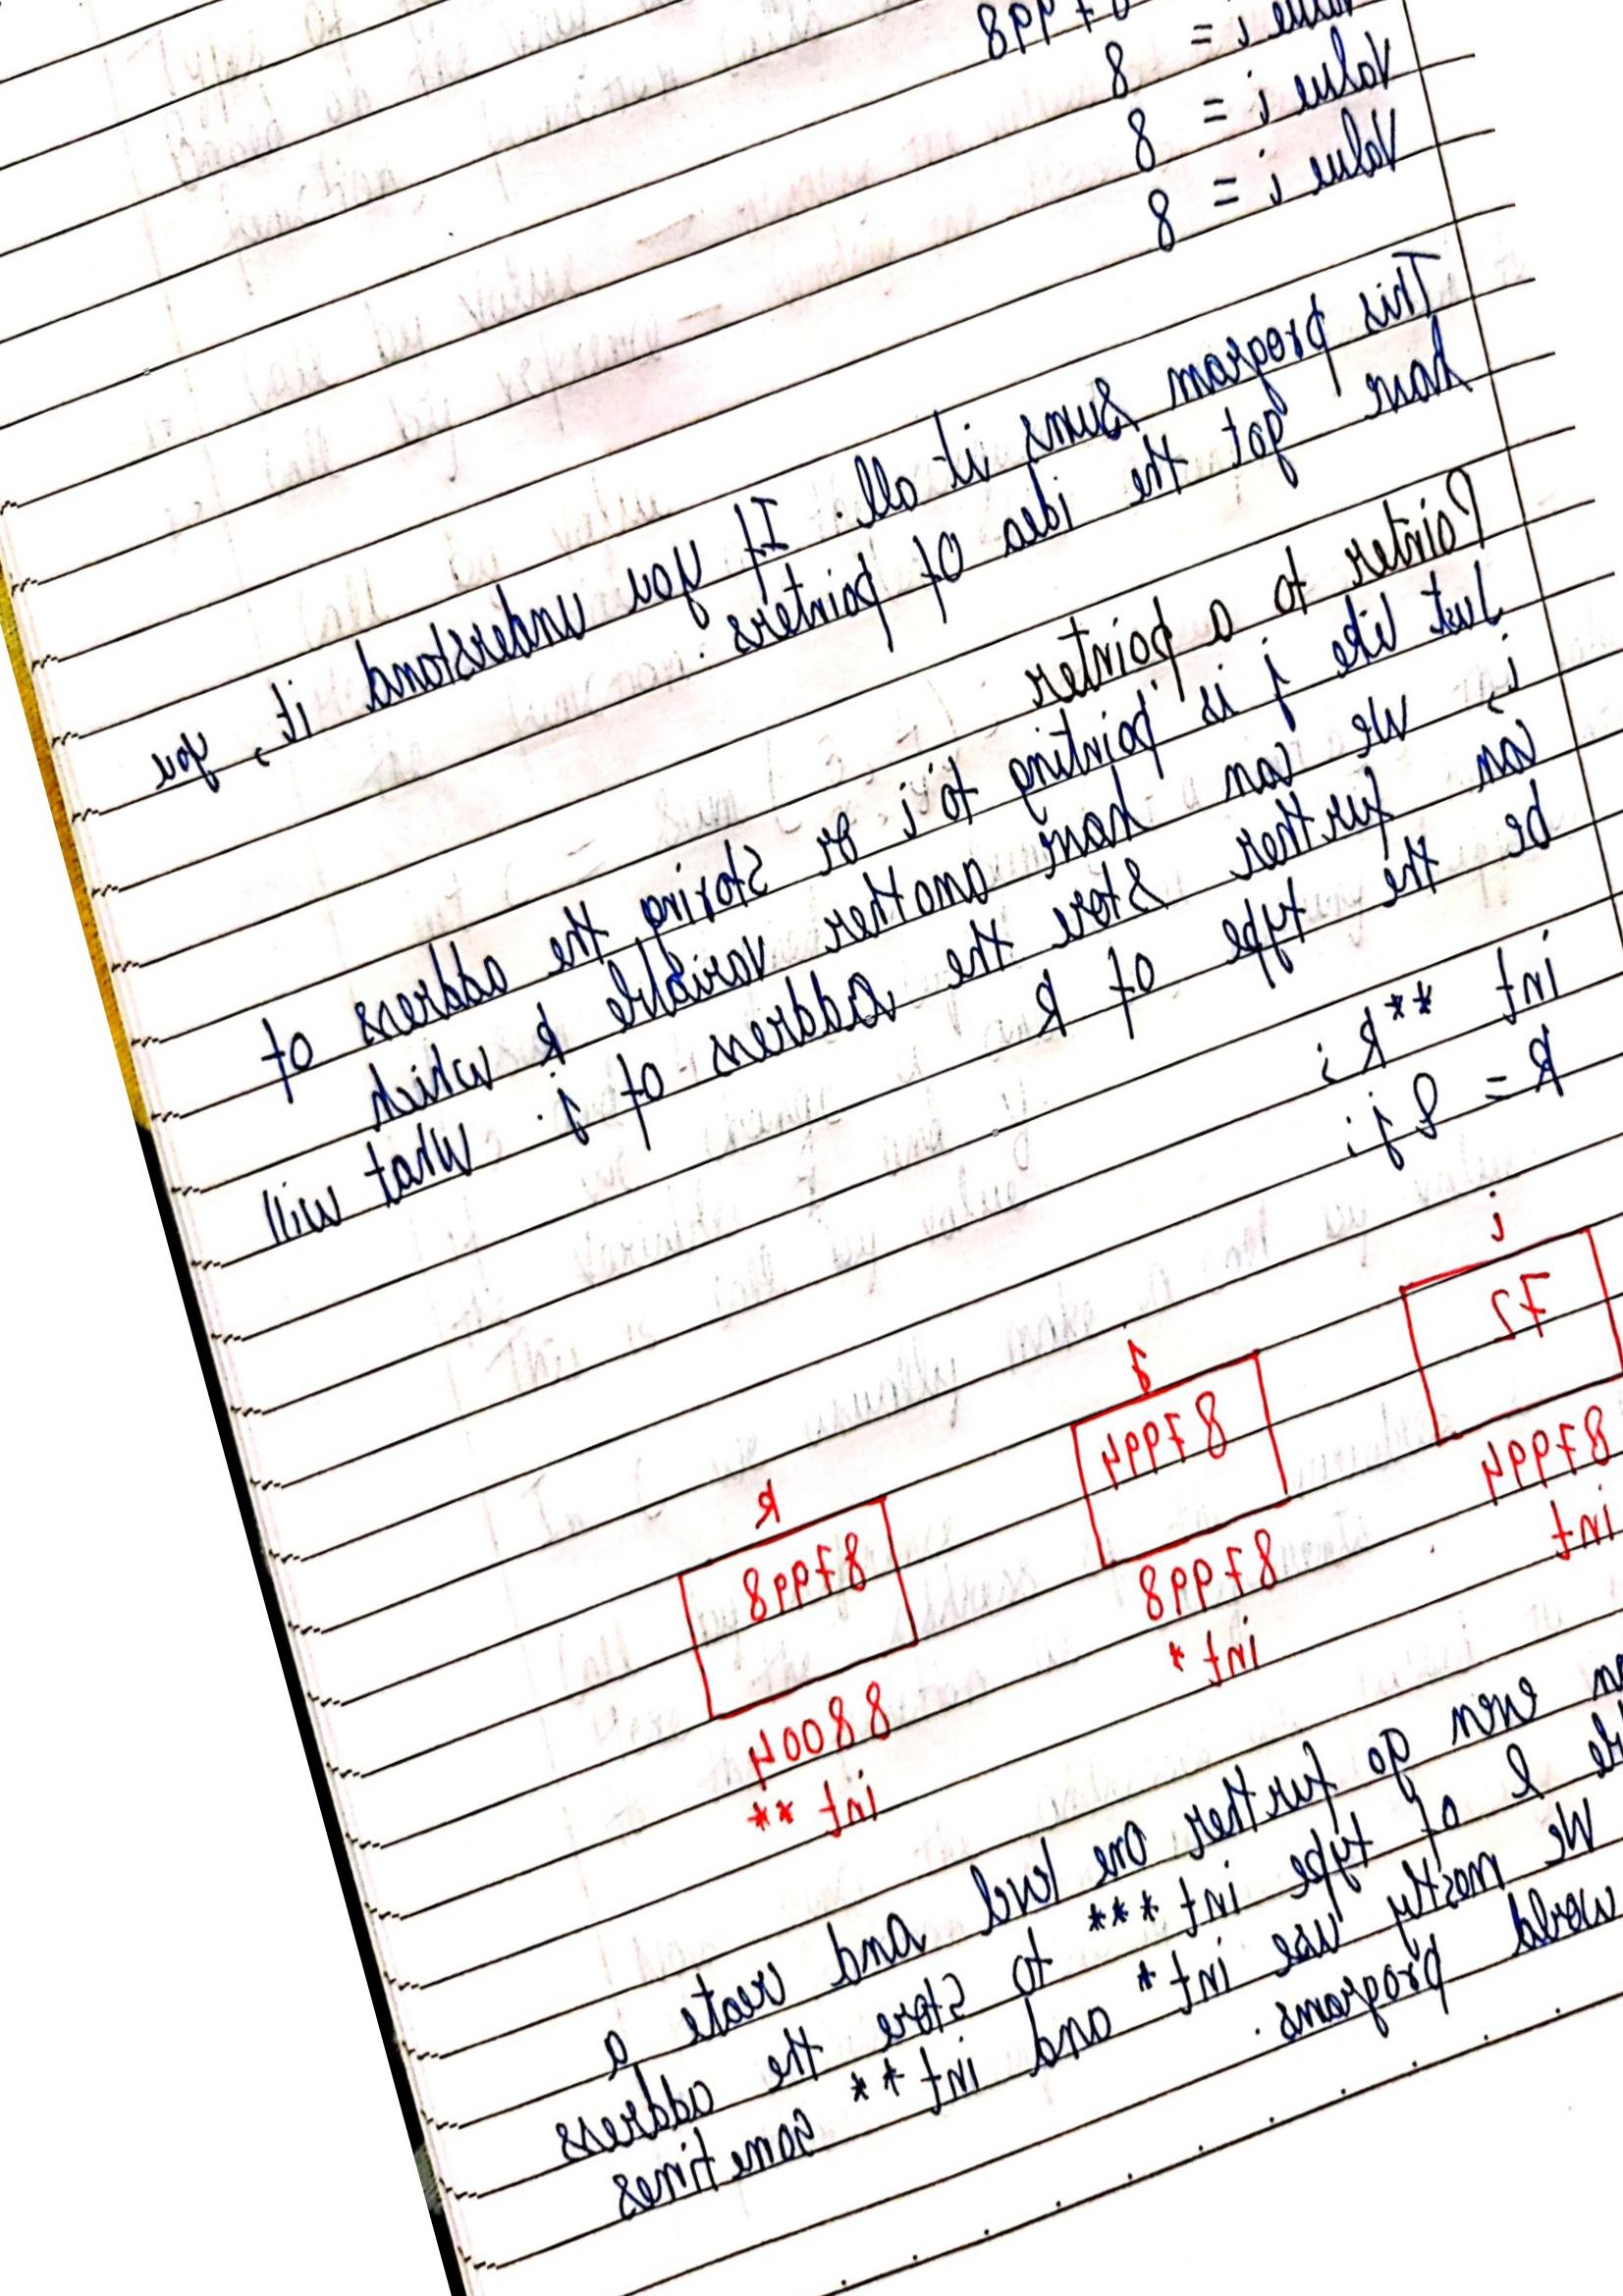 Value i =
87998
Value i = 8
Value i = 8
Value i = 8
This program sums it all. If you understand it, you
have got the idea of pointers.
Pointer to a pointer
Just like j is pointing to i or storing the address of
i, we can have another variable k which
can further store the address of j. What will
be the type of k
int **k;
k = &j;
i j k
72 87994 87998
87994 87998 88004
int int * int **
even go further one level and create a
l of type int *** to store the address
We mostly use int * and int ** sometimes
world programs.